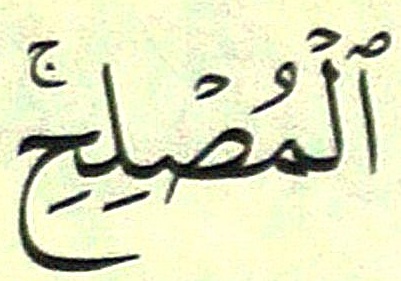 ٱلْمُصْلِحِۚ